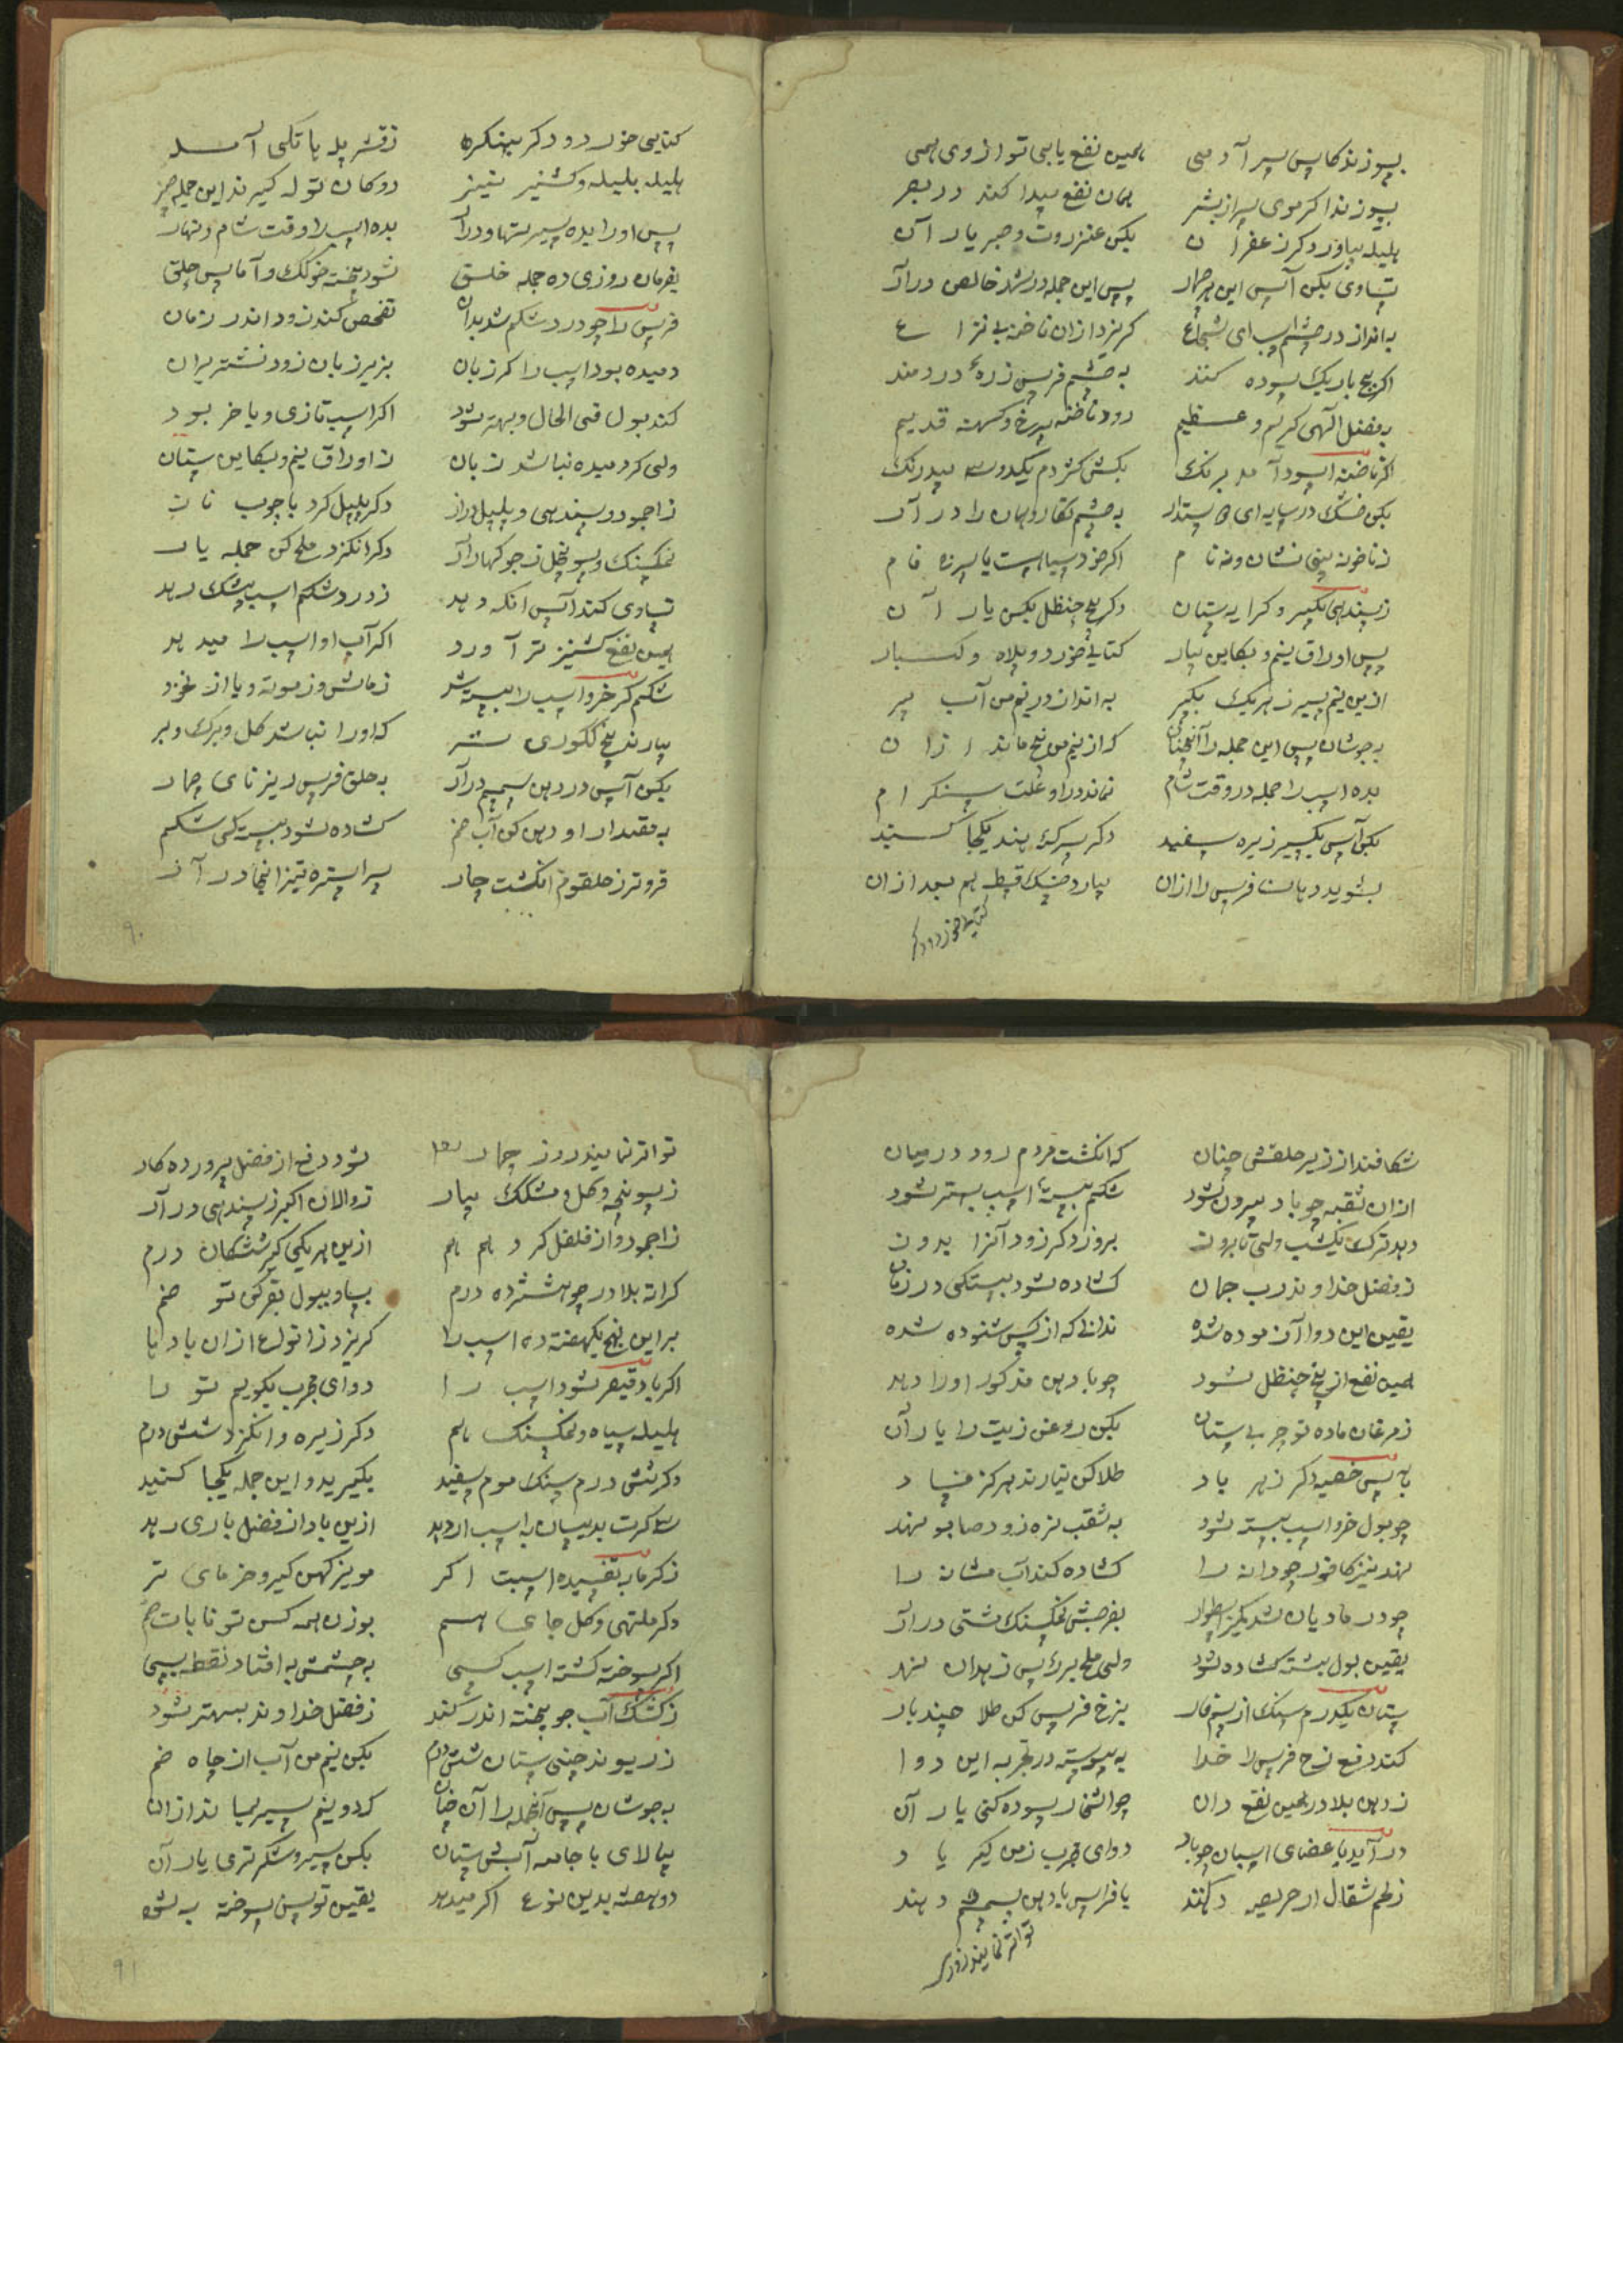 بسوزند کاس سر آدمی همین نفع یابی تو از وی همی
بسوزند اگر موی سر از بشر همان نفع پیدا کند در بصر
هلیله بیاور دگر زعفران بکن عنزروت و صبر یار آن
تساوی بکن آس این هر چهار پس این جمله در شهد خالص درآر
به انداز در چشم اسب ای شجاع گریزد ازان ناخنه بی نزاع
اگر بیخ باریک سوده کنند به چشم فرس زره دردمند
بفضل الهی کریم و عظیم رود ناخنه سرخ و کهنه قدیم
اگر ناخنه اسود آمد برنگ بکش کژدم یکدو سه بیدرنگ
بکن خشک در سایه ای به چشم نقار و همان را درآر
ز ناخونه بینی نشان ونه نام اگر خود سیاهست یا سبزه فام
ز سیندهی بگیر و کرایه ستان دگر بیخ حنظل بکن یار آن
پس اوراق نیم و بکاین بیار کتایی خورد و بلاه و
ازین نیم سیر ز هریک بگیر به انداز در نیم من آب
به جوشان پس این جمله را آنچنان که از نیم من نیم ماند ازان
بده اسب را جمله در وقت شام نماند درو علت سنگرام
بکن آس یکسیر زیره سفید دگر سرکه هند یکجا کنید
بشوید دهان فرس را ازان بیارد خشک قسط هم بعد ازان
کتایی خورد و دگر
کتایی خورد و دگر بهنکره ز قشر بد پاتکی آمله
هلیله بلیله و کشنیز نیز دو کان تول گیرند این جمله چیز
پس اورا بده سیر درآر بده اسب را وقت شام و نهار
بفرمان روزی ده جمله خلق شود پخته خوکک و آماس حلق
فرس را چو درد شکم شد بدان تفحص کنند زود اندر زمان
دمیده بود اسب را گر زبان بزیر زبان زود نشتر بران
کند بول فی الحال و بهتر شود اگر اسب تازی و یا خر بود
ولی گر دمیده نباشد زبان ز اوراق نیم و بکاین ستان
ز اجمود و سیندهی و پلپل دراز دگر پلپل گرد با چوب
نمکسنگ و درآر دگر انگزد ملح کن جمله یار
تساوی کنند آس آنگه دهد ز درد شکم اسب بیشک رهد
همین نفع کشنیز تر آورد اگر آب او اسب را میدهد
شکم گر خر و اسب را بسته شد ز ماش و ز موته و یا از نخود
بیارند بیخ ککوری که اورا نباشد گل و برگ و بر
بکن آس در دهن درآر به حلق فرس ریز نای چهار
به مقدار او دهن کن آب خم کشاده شود بستگی شکم
فروتر ز حلقوم انگشت چار سر استره تیز آنجا درآر
۹۰
شکافند از زیر حلقش چنان که انگشت مردم رود درمیان
ازان ثقبه چو باد بیرون شود شکم بسته اسب بهتر شود
بروز دگر زود آنرا بدوز
ز فضل خداوند رب جهان کشاده شود بستگی در زمان
یقین این دوا آزموده شده ندانی که از کس شنوده شده
همین نفع از بیخ حنظل شود چو با دهن مذکور اورا دهد
ز مرغان ماده تو چربی ستان بکن روغن زیت را یار آن
به پس خصیه دگر زهر باد طلا کن نیارند هرگز فساد
چو بول خر و اسب بسته شود به ثقب نره زود صابو نهند
نهند نیز کافور جودانه را کشاده کند آب مشانه را
چو در مادیان شد بفرجش نمکسنگ مشتی درآر
یقین بول بسته کشاده شود ولی ملح برگ پس زهدان نهد
ستان یکدرم سنگ از بنزخ فرس کن طلا چند بار
کند دفع نزح فرس را خدا به پیوسته در تجربه این دوا
ز دهن بلادر همین نفع دان چو اشخار سوده کنی یار آن
درآید باعضای اسپان چو باد دوای مجرب ز من گیر یاد
ز لحم شقال ار هریسه کنند با فراس بادهن دهند
تواتر نمایند روز
تواتر نمایند روز چهار شود دفع از فضل پروردگار
ز سونیچه و کل و مشکک بیار نروالان اکبر ز سیندهی درآر
ز اجمود و از فلفل گرد هم ازین هر یکی گیر شش کان درم
کرانه بلادر چو هشتزده درم بساو ببول بقر کن تو ضم
بر این نهج یکهفته ده اسب را گریزد ز انواع ازان باد ها
اگر باد قیصر شود اسب را دوای مجرب بگویم تو را
هلیله سیاه و نمکسنگ هم دگر زیره و انگزد شش درم
دگر شش درم سنگ موم سفید بگیرید و این جمله یکجا کنید
سه کرت بدینسان به اسب ار دهد ازین باد از فضل باری رهد
ز گرما بتفسیده اسبت اگر مویز کهن گیر و خرمای تر
دگر ملتهی و کل جای هم بوزن همه کن تو نابات ضم
اگر سوخته گشته اسب کسی به چشمش به افتاد نقطه بسی
ز کشک آب جو پخته اندر کنند ز فضل خداوند بهتر شود
ز ریوند چینی ستان شش درم بکن نیم من آب از چاه ضم
به جوشان پس آنجمله را آن چنان که دو نیم سیر بماند ازان
بپالای با جامه آبش ستان بکن سیر و شکر تری یار آن
دو هفته بدین نوع اگر میدهد یقین تو سن سوخته به شود
۹۱